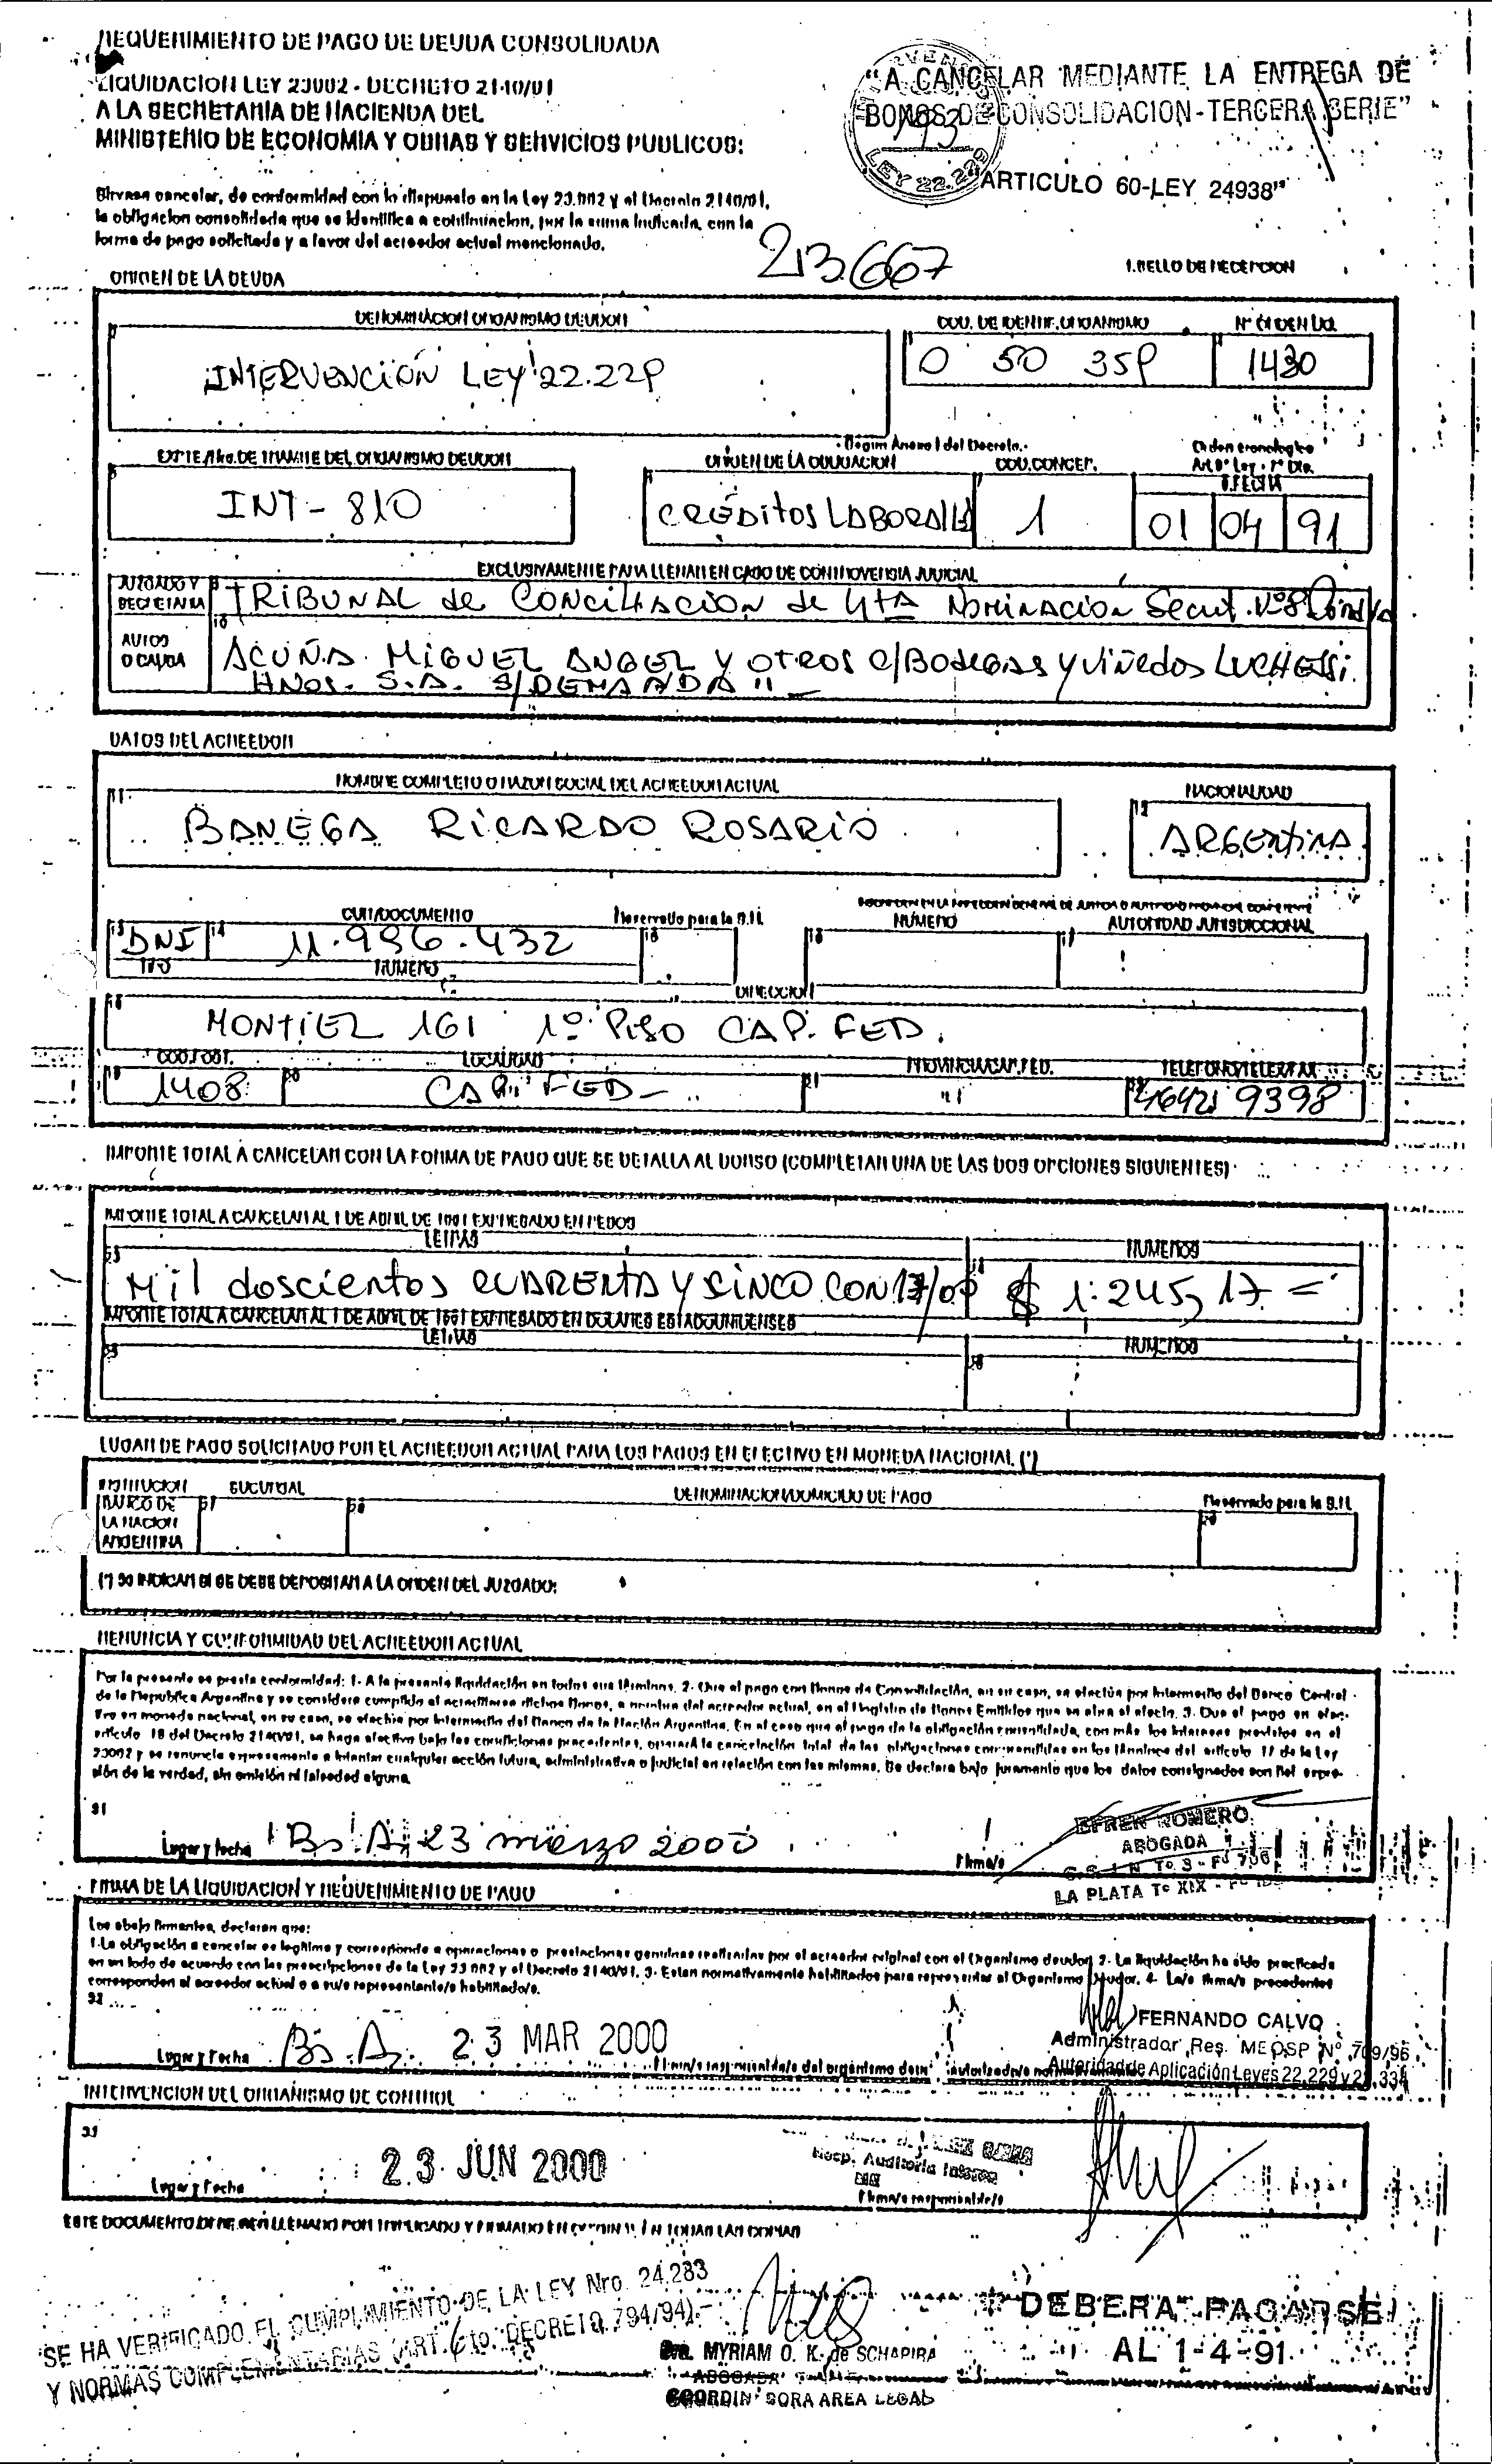 REQUERIMIENTO DE PAGO DE DEUDA CONSOLIDADA
LIQUIDACION LEY 23982 - DECRETO 2140/91
A LA SECRETARIA DE HACIENDA DEL
MINISTERIO DE ECONOMIA Y OBRAS Y SERVICIOS PUBLICOS:
"A CANCELAR MEDIANTE LA ENTREGA DE
BONOS DE CONSOLIDACION-TERCERA SERIE"
LEY 22.229
ARTICULO 60-LEY 24938"
Sirvase cancelar, de conformidad con lo dispuesto en la Ley 23.982 y el Decreto 2140/91,
la obligacion consolidada que se identifica a continuacion, por la suma indicada, con la
forma de pago solicitada y a favor del acreedor actual mencionado.
213667
1.SELLO DE RECEPCION
ORIGEN DE LA DEUDA
DENOMINACION ORGANISMO DEUDOR
COD. DE IDENTIF. ORGANISMO
Nº ORDEN LIQ.
INTERVENCIÓN LEY 22.229
0 50 359
1430
Según Anexo I del Decreto.
EXPTE./Nro. DE TRAMITE DEL ORGANISMO DEUDOR
ORIGEN DE LA OBLIGACION
COD. CONCEP.
Orden cronologico
FECHA
INT - 810
CRÉDITOS LABORALES
1
01 04 91
EXCLUSIVAMENTE PARA LLENAR EN CASO DE CONTROVERSIA JUDICIAL
JUZGADO Y
SECRETARIA
TRIBUNAL de CONCILIACION de 4TA NOMINACION Secret. Nº8
AUTOS
O CAUSA
ACUÑA MIGUEL ANGEL Y OTROS C/BODEGAS Y VIÑEDOS LUCHESSI
HNOS. S.A. S/DEMANDA"
DATOS DEL ACREEDOR
NOMBRE COMPLETO O RAZON SOCIAL DEL ACREEDOR ACTUAL
NACIONALIDAD
BANEGA RICARDO ROSARIO
ARGENTINA
CUIT/DOCUMENTO
Reservado para la S.H.
NUMERO
AUTORIDAD JURISDICCIONAL
DNI
11.956.432
TIPO
NUMERO
DIRECCION
MONTIEL 161 1º PISO CAP. FED.
COD. POST.
LOCALIDAD
PROVINCIA/CAP. FED.
TELEFONO/TELEX/FAX
1408
CAP. FED -
"
4642 9398
IMPORTE TOTAL A CANCELAR CON LA FORMA DE PAGO QUE SE DETALLA AL DORSO (COMPLETAR UNA DE LAS DOS OPCIONES SIGUIENTES)
IMPORTE TOTAL A CANCELAR AL 1 DE ABRIL DE 1991 EXPRESADO EN PESOS
LETRAS
NUMEROS
Mil doscientos CUARENTA Y CINCO CON 17/00
$ 1.245,17 =
IMPORTE TOTAL A CANCELAR AL 1 DE ABRIL DE 1991 EXPRESADO EN DOLARES ESTADOUNIDENSES
LETRAS
NUMEROS
LUGAR DE PAGO SOLICITADO POR EL ACREEDOR ACTUAL PARA LOS PAGOS EN EFECTIVO EN MONEDA NACIONAL (*)
INSTITUCION
SUCURSAL
DENOMINACION/DOMICILIO DE PAGO
Reservado para la S.H.
BANCO DE
LA NACION
ARGENTINA
(*) SO INDICAR SI SE DEBE DEPOSITAR A LA ORDEN DEL JUZGADO:
RENUNCIA Y CONFORMIDAD DEL ACREEDOR ACTUAL
Por la presente se presta conformidad: 1- A la presente liquidación en todos sus términos. 2- Que el pago con Bonos de Consolidación, en su caso, se efectúa por intermedio del Banco Central
de la Republica Argentina y se considera cumplido al acreditarse dichos Bonos, a nombre del acreedor actual, en el Registro de Bonos Emitidos que se abra al efecto. 3. Que el pago en efec-
tivo en moneda nacional, en su caso, se efectúa por intermedio del Banco de la Nación Argentina. En el caso que el pago de la obligación consolidada, con más los intereses previstos en el
artículo 18 del Decreto 2140/91, se haga efectivo bajo las condiciones precedentes, operará la cancelación total de las obligaciones comprendidas en los términos del artículo 17 de la Ley
23982 y se renuncia expresamente a intentar cualquier acción futura, administrativa o judicial en relación con las mismas. Se declara bajo juramento que los datos consignados son fiel expre-
sión de la verdad, sin omisión ni falsedad alguna.
31
Lugar y fecha
Bs. A, 23 marzo 2000
Firma/s
EFREN ROMERO
ABOGADA
LA PLATA Tº XIX - Fº
FIRMA DE LA LIQUIDACION Y REQUERIMIENTO DE PAGO
Los abajo firmantes, declaran que:
1-La obligación a cancelar es legítima y corresponde a operaciones o prestaciones genuinas realizadas por el acreedor original con el Organismo deudor. 2- La liquidación ha sido practicada
en un todo de acuerdo con las prescripciones de la Ley 23.982 y el Decreto 2140/91. 3- Estan normativamente habilitados para representar al Organismo Deudor. 4- La/s firma/s precedentes
corresponden al acreedor actual o a su/s representante/s habilitado/s.
32
Lugar y Fecha
Bs. A. 23 MAR 2000
FERNANDO CALVO
Administrador Res. MEOSP Nº 709/96
Autoridad de Aplicación Leyes 22.229 y 22.334
INTERVENCION DEL ORGANISMO DE CONTROL
33
Lugar y Fecha
23 JUN 2000
Resp. Auditoría Interna
Firma/s responsable/s
ESTE DOCUMENTO DEBERA SER LLENADO POR TRIPLICADO Y FIRMADO EN ORIGINAL EN TODAS LAS COPIAS
SE HA VERIFICADO EL CUMPLIMIENTO DE LA LEY Nro. 24.283
Y NORMAS COMPLEMENTARIAS (ART. 6to. DECRETO 794/94).-
Dra. MYRIAM O. K. de SCHAPIRA
ABOGADA
COORDINADORA AREA LEGAL
"DEBERA PAGARSE
AL 1-4-91